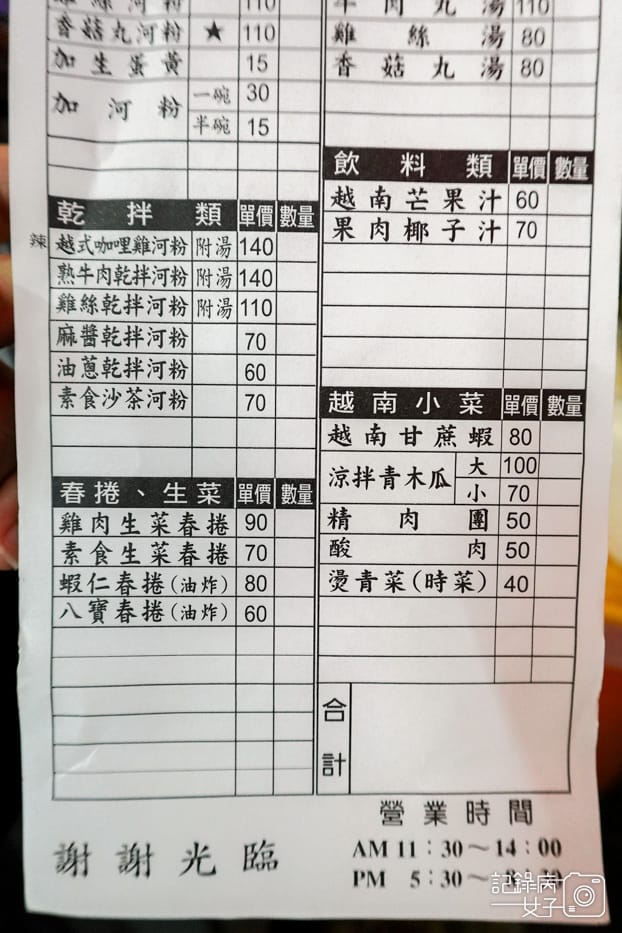 香菇丸河粉 ★ 110
加生蛋黃 15
加河粉 一碗 30
半碗 15
乾拌類 單價 數量
辣 越式咖哩雞河粉 附湯 140
熟牛肉乾拌河粉 附湯 140
雞絲乾拌河粉 附湯 110
麻醬乾拌河粉 70
油蔥乾拌河粉 60
素食沙茶河粉 70
春捲、生菜 單價 數量
雞肉生菜春捲 90
素食生菜春捲 70
蝦仁春捲(油炸) 80
八寶春捲(油炸) 60
牛肉丸湯 110
雞絲湯 80
香菇丸湯 80
飲料類 單價 數量
越南芒果汁 60
果肉椰子汁 70
越南小菜 單價 數量
越南甘蔗蝦 80
涼拌青木瓜 大 100
小 70
精肉團 50
酸肉 50
燙青菜(時菜) 40
合計
謝謝光臨
營業時間
AM 11：30～14：00
PM 5：30～
記錄病女子